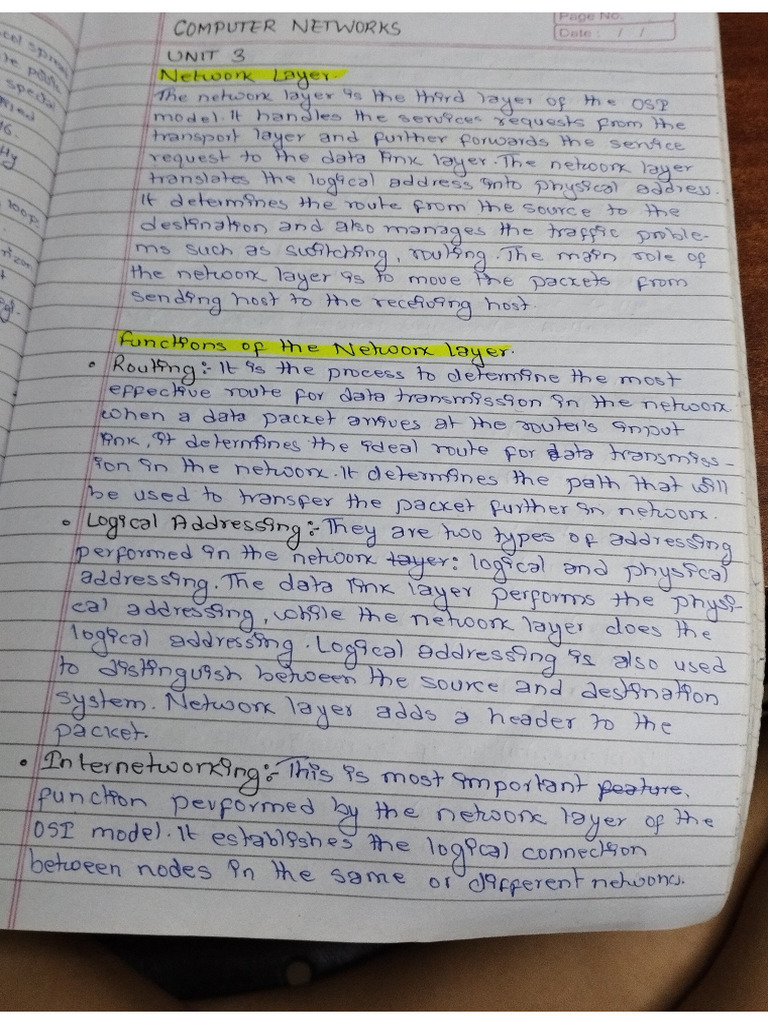 Page No.
Date : / /
COMPUTER NETWORKS
UNIT 3
Network Layer.
The network layer is the third layer of the OSI
model. It handles the services requests from the
transport layer and further forwards the service
request to the data link layer. The network layer
translates the logical address into physical address.
It determines the route from the source to the
destination and also manages the traffic proble-
ms such as switching, routing. The main role of
the network layer is to move the packets from
sending host to the receiving host.
functions of the Network layer.
• Routing:- It is the process to determine the most
effective route for data transmission in the network
when a data packet arrives at the router's input
link, it determines the ideal route for data transmiss-
ion in the network. It determines the path that will
be used to transfer the packet further in network.
• Logical Addressing:- They are two types of addressing
performed in the network layer: logical and physical
addressing. The data link layer performs the physi-
cal addressing, while the network layer does the
logical addressing. Logical addressing is also used
to distinguish between the source and destination
system. Network layer adds a header to the
packet.
• Internetworking:- This is most important feature.
function performed by the network layer of the
OSI model. It establishes the logical connection
between nodes in the same or different network.